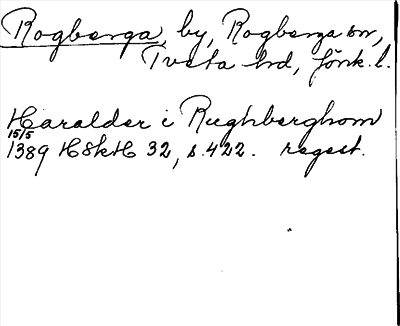 Rogberga, by, Rogberga sn,
Tveta hd, Jönk. l.
Haralder i Rughberghom
15/5
1389 HSkH 32, s. 422. regest.